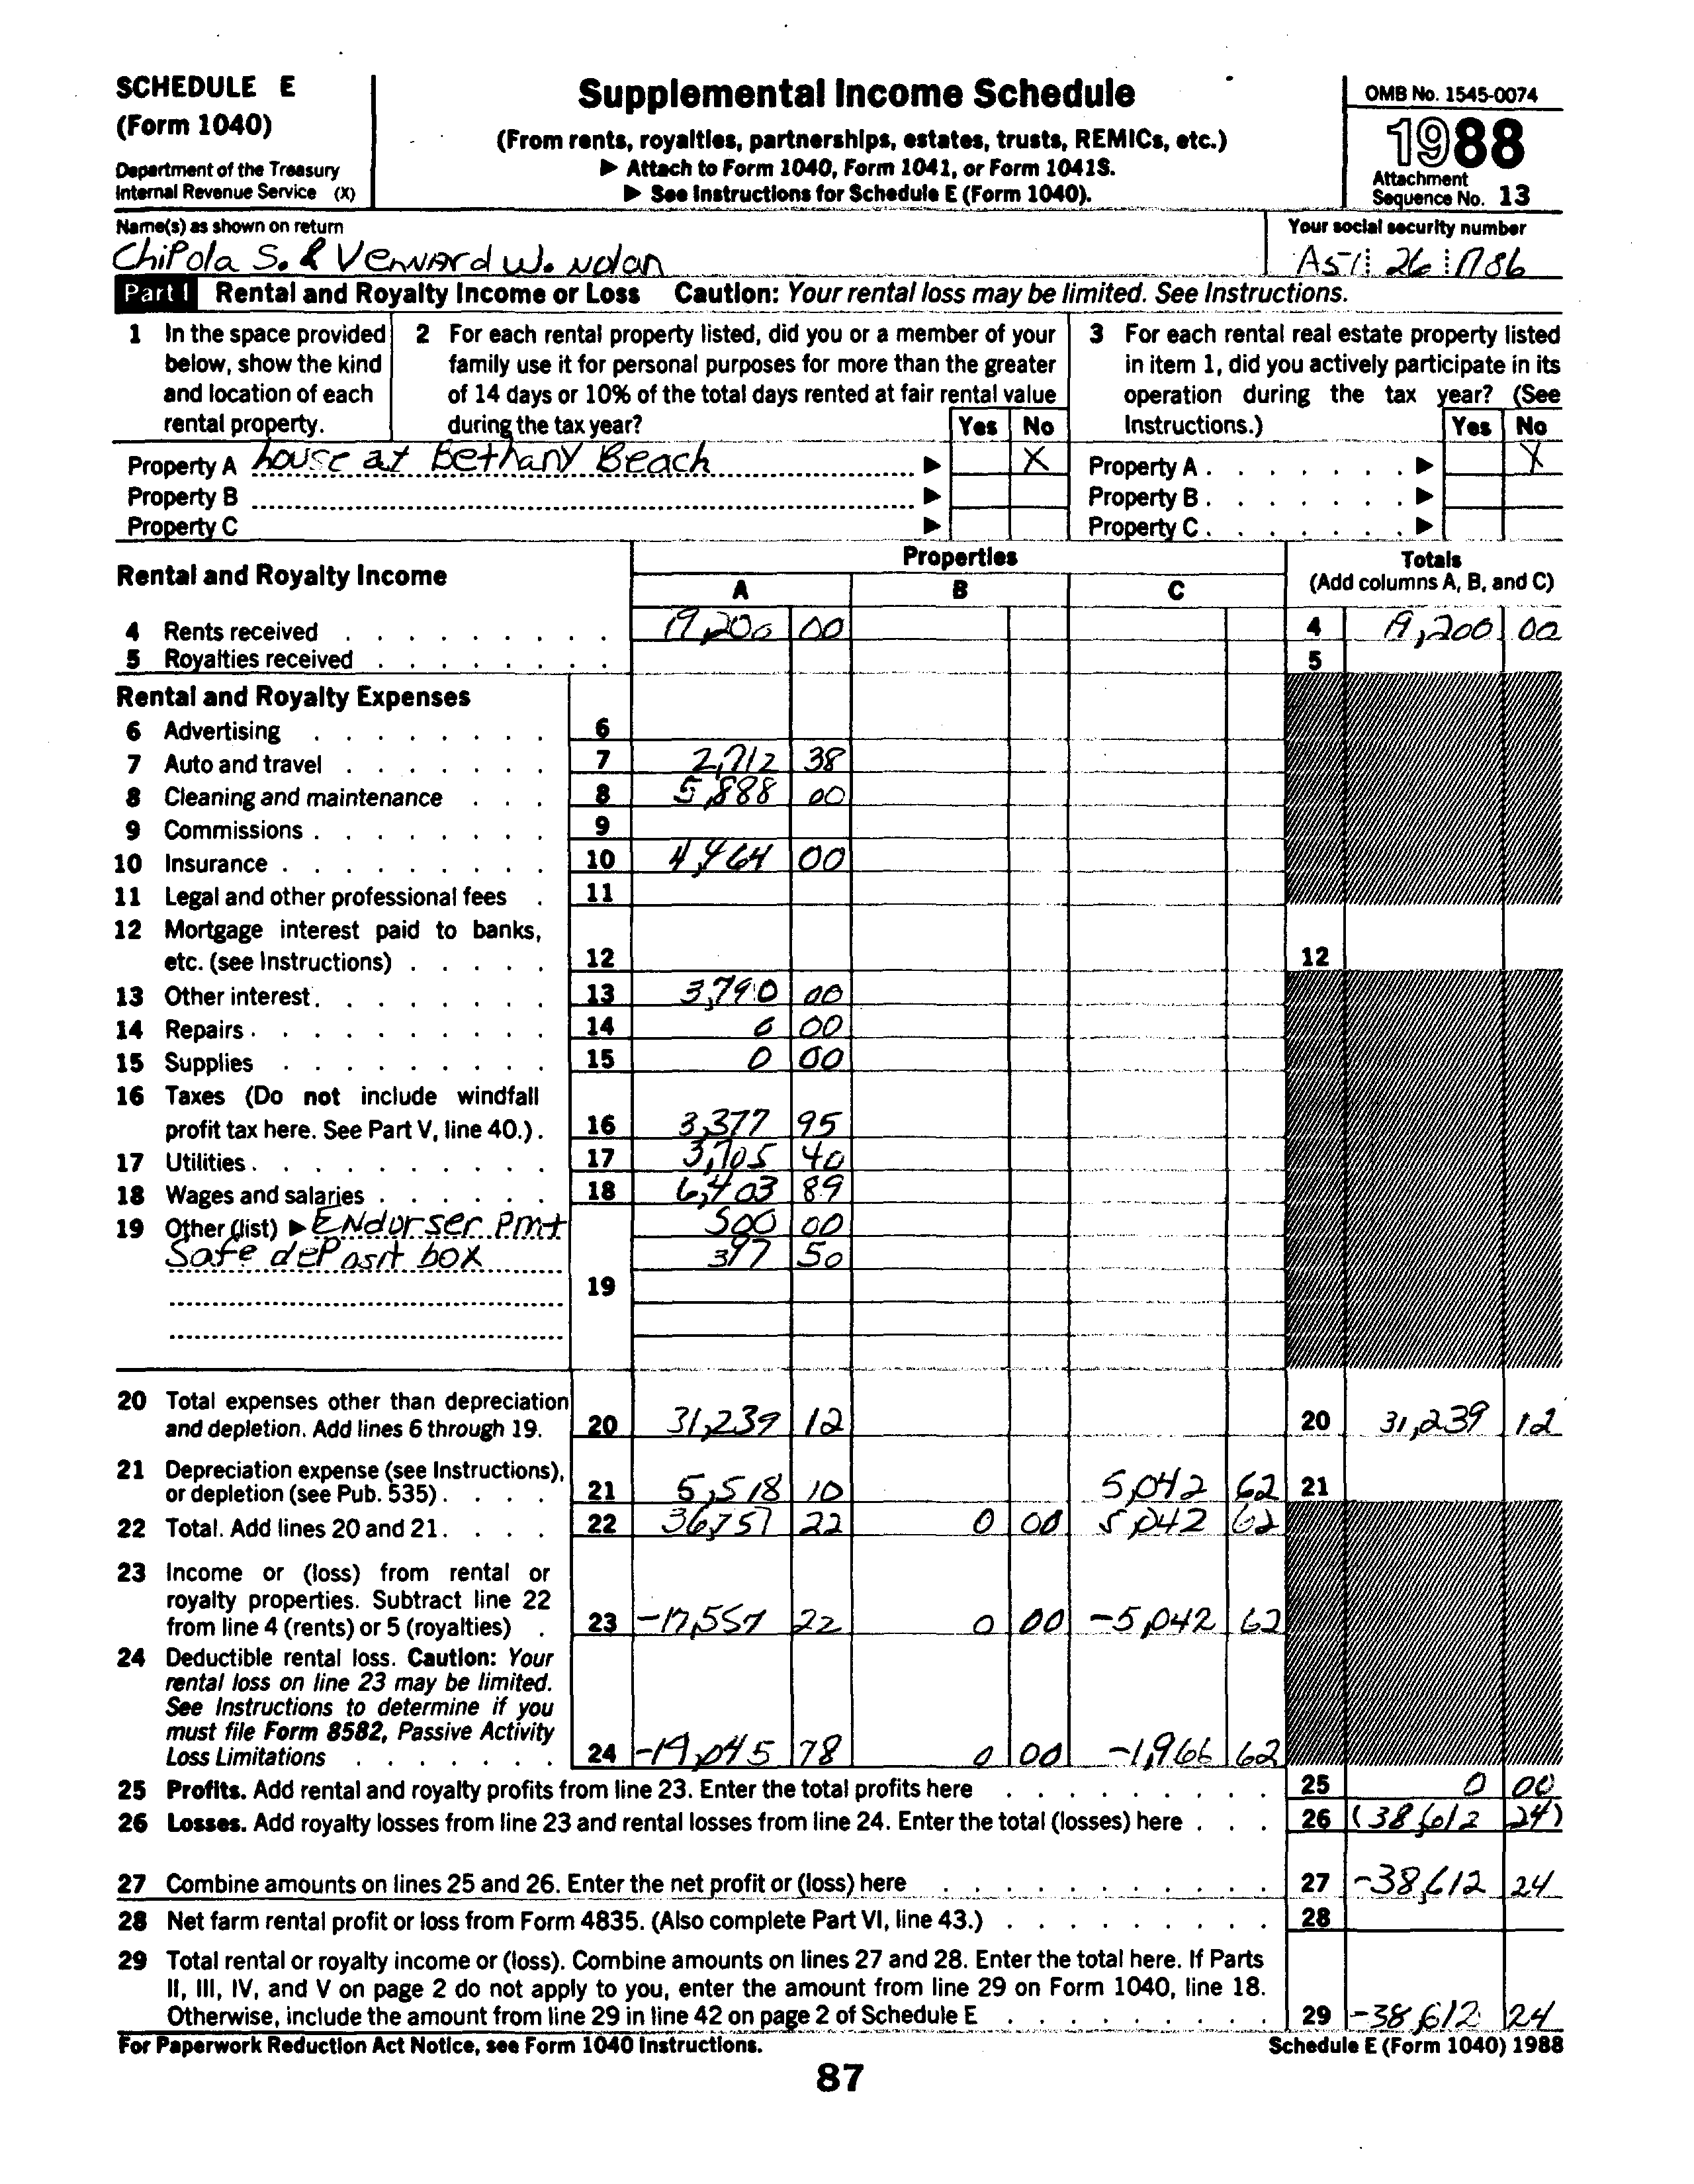 SCHEDULE E
(Form 1040)
Department of the Treasury
Internal Revenue Service (X)
Supplemental Income Schedule
(From rents, royalties, partnerships, estates, trusts, REMICs, etc.)
▶ Attach to Form 1040, Form 1041, or Form 1041S.
▶ See Instructions for Schedule E (Form 1040).
OMB No. 1545-0074
1988
Attachment
Sequence No. 13
Name(s) as shown on return
Your social security number
ChiPola S. & Vennard W. Nolan
26
Part I Rental and Royalty Income or Loss Caution: Your rental loss may be limited. See Instructions.
1 In the space provided below, show the kind and location of each rental property.
2 For each rental property listed, did you or a member of your family use it for personal purposes for more than the greater of 14 days or 10% of the total days rented at fair rental value during the tax year?
Yes No
3 For each rental real estate property listed in item 1, did you actively participate in its operation during the tax year? (See Instructions.)
Yes No
Property A house at Bethany Beach ▶ X Property A ▶ X
Property B ▶ Property B ▶
Property C ▶ Property C ▶
Rental and Royalty Income
Properties
A B C
Totals
(Add columns A, B, and C)
4 Rents received 19,200 00 4 19,200 00
5 Royalties received 5
Rental and Royalty Expenses
6 Advertising 6
7 Auto and travel 7 2,712 38
8 Cleaning and maintenance 8 5,888 00
9 Commissions 9
10 Insurance 10 4,464 00
11 Legal and other professional fees 11
12 Mortgage interest paid to banks, etc. (see Instructions) 12 12
13 Other interest 13 3,790 00
14 Repairs 14 0 00
15 Supplies 15 0 00
16 Taxes (Do not include windfall profit tax here. See Part V, line 40.) 16 3,377 95
17 Utilities 17 3,705 40
18 Wages and salaries 18 6,403 89
19 Other (list) ▶ Endorser Pmt 500 00
Safe dePosit box 397 50
19
20 Total expenses other than depreciation and depletion. Add lines 6 through 19. 20 31,239 12 20 31,239 12
21 Depreciation expense (see Instructions), or depletion (see Pub. 535) 21 5,518 10 5,042 62 21
22 Total. Add lines 20 and 21. 22 36,757 22 0 00 5,042 62
23 Income or (loss) from rental or royalty properties. Subtract line 22 from line 4 (rents) or 5 (royalties) 23 -17,557 22 0 00 -5,042 62
24 Deductible rental loss. Caution: Your rental loss on line 23 may be limited. See Instructions to determine if you must file Form 8582, Passive Activity Loss Limitations 24 78 0 00 -1,966 62
25 Profits. Add rental and royalty profits from line 23. Enter the total profits here 25 0 00
26 Losses. Add royalty losses from line 23 and rental losses from line 24. Enter the total (losses) here 26 (38,612 24)
27 Combine amounts on lines 25 and 26. Enter the net profit or (loss) here 27 -38,612 24
28 Net farm rental profit or loss from Form 4835. (Also complete Part VI, line 43.) 28
29 Total rental or royalty income or (loss). Combine amounts on lines 27 and 28. Enter the total here. If Parts II, III, IV, and V on page 2 do not apply to you, enter the amount from line 29 on Form 1040, line 18. Otherwise, include the amount from line 29 in line 42 on page 2 of Schedule E 29 -38,612 24
For Paperwork Reduction Act Notice, see Form 1040 Instructions.
Schedule E (Form 1040) 1988
87